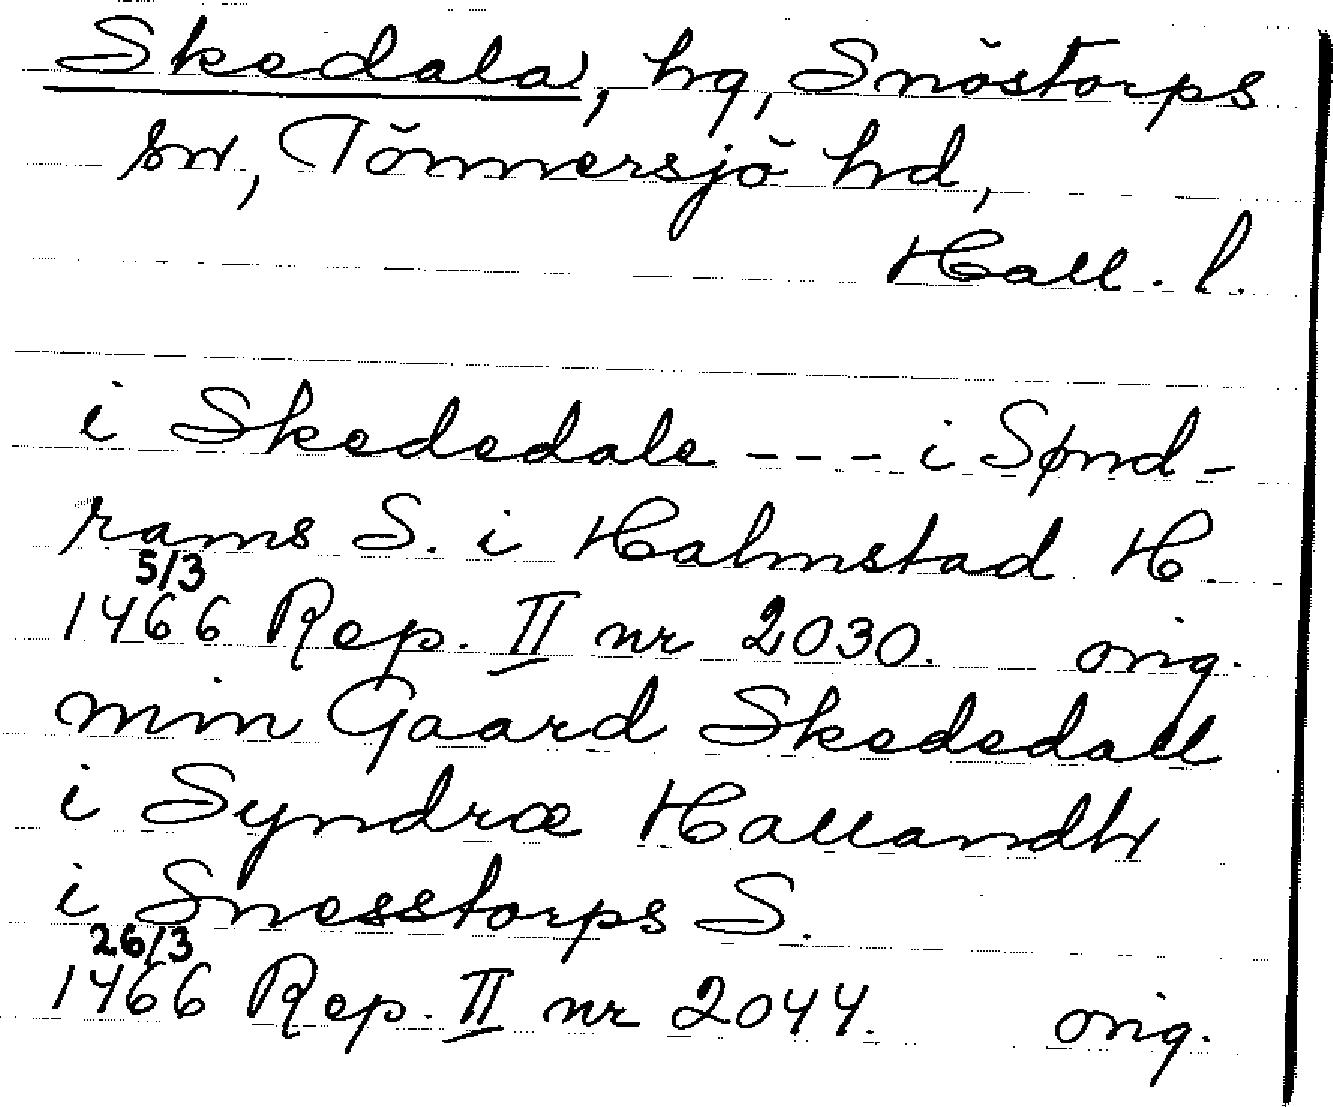 Skedala, hg, Snöstorps
sn, Tönnersjö hd,
Hall. l.
i Skededale --- i Sønd-
rams S. i Halmstad H.
5/3
1466 Rep. II nr 2030. orig.
min Gaard Skededall
i Syndræ Hallandh
i Snesstorps S.
26/3
1466 Rep. II nr 2044. orig.